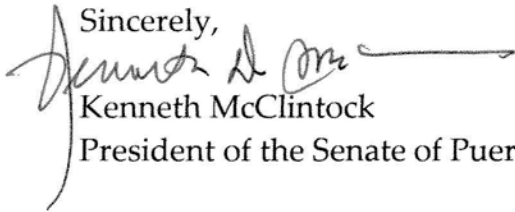 Sincerely,
Kenneth McClintock
President of the Senate of Puer